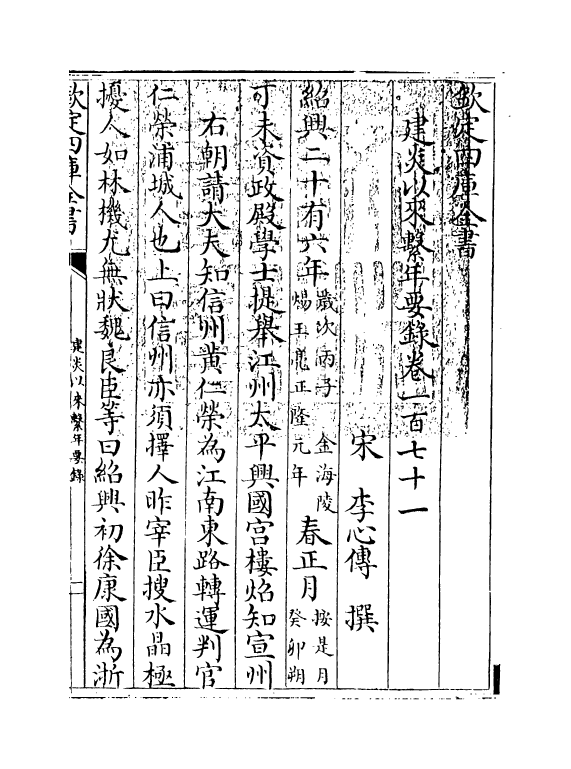 欽定四庫全書
建炎以來繫年要錄卷一百七十一
宋 李心傳 撰
紹興二十有六年歲次丙子 金海陵煬王亮正隆元年春正月按是月癸卯朔
丁未資政殿學士提舉江州太平興國宮樓炤知宣州
右朝請大夫知信州黃仁榮為江南東路轉運判官
仁榮浦城人也上曰信州亦須擇人昨宰臣搜水晶極
擾人如林機尤無狀魏良臣等曰紹興初徐康國為浙
欽定四庫全書
建炎以來繫年要錄